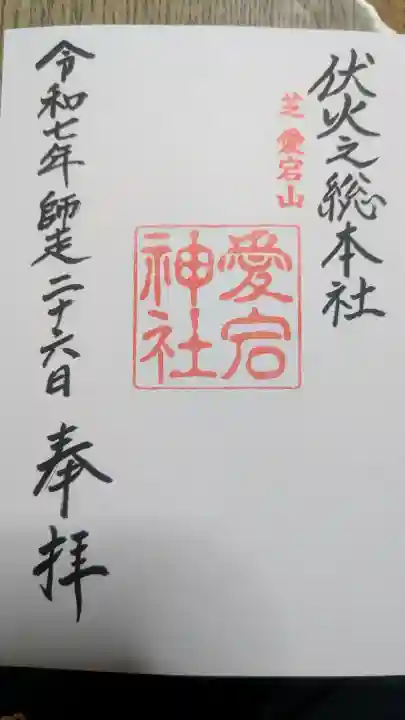 伏火之総本社
芝 愛宕山
愛宕
神社
令和七年 師走 二十六日 奉拝